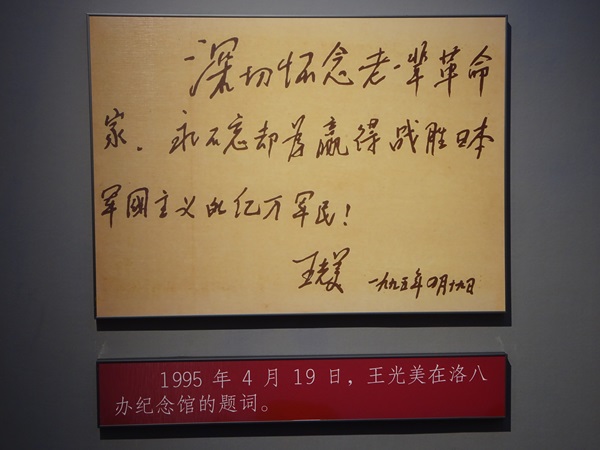 深切怀念老一辈革命
家、永不忘却为赢得战胜日本
军國主义的亿万军民！
王光美 一九九五年四月十九日
1995 年 4 月 19 日，王光美在洛八
办纪念馆的题词。